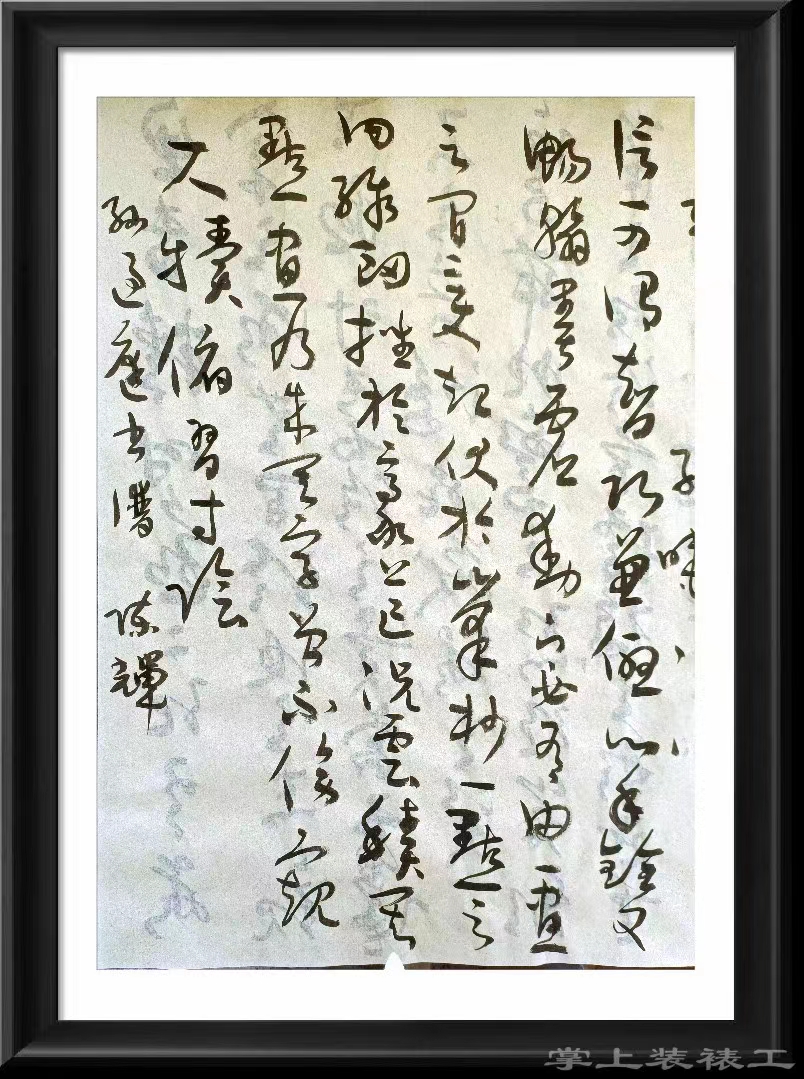 信可謂智巧兼優心手
暢翰虛動下必有由一畫
之間變起伏於峯杪一點之
内殊衄挫於豪芒況云積其
點畫乃成其字曾不傍窺
尺牘俯習寸陰
孫過庭書譜 陳輝
掌上装裱工